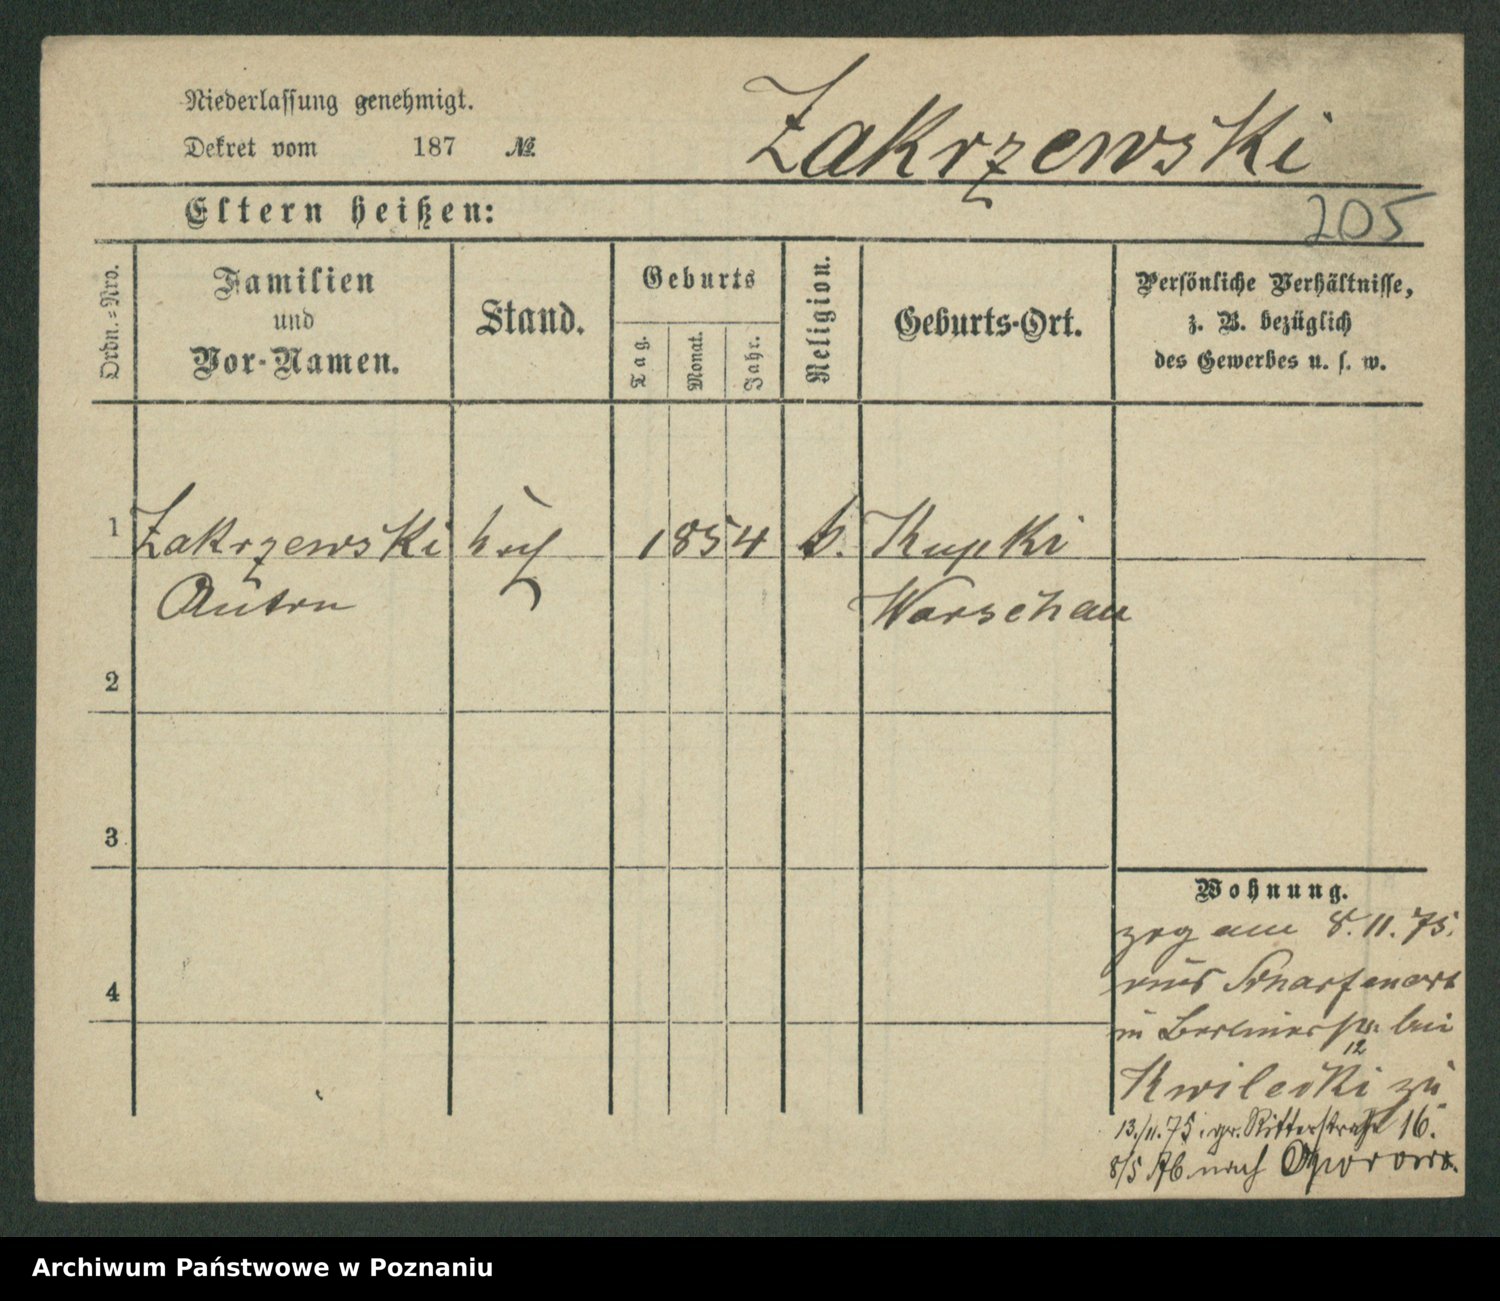 Niederlassung genehmigt.
Dekret vom 187 №
Zakrzewski
Eltern heißen:
205
Ordn.=Nro.
Familien
und
Vor-Namen.
Stand.
Geburts
Tag.
Monat.
Jahr.
Religion.
Geburts-Ort.
Persönliche Verhältnisse,
z. B. bezüglich
des Gewerbes u. s. w.
1 Zakrzewski 1854 k. Kupki
Anton Warschau
2
3
4
Wohnung.
zog am 8.11.75.
aus Scharfenort
in Berlinerstr. bei
12
Kwilecki zu
13./11.75 gr. Ritterstraße 16.
8/5 76 nach Oporowo.
Archiwum Państwowe w Poznaniu